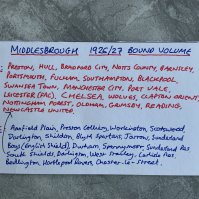 MIDDLESBROUGH 1926/27 BOUND VOLUME
PRESTON, HULL, BRADFORD CITY, NOTTS COUNTY, BARNSLEY,
PORTSMOUTH, FULHAM, SOUTHAMPTON, BLACKPOOL,
SWANSEA TOWN, MANCHESTER CITY, PORT VALE,
LEICESTER (FAC) CHELSEA, WOLVES, CLAPTON ORIENT,
NOTTINGHAM FOREST, OLDHAM, GRIMSBY, READING,
NEWCASTLE UNITED.
Annfield Plain, Preston Colliery, Workington, Scotswood,
Darlington, Shildon, Blyth Spartans, Jarrow, Sunderland
Boys (English Shield), Durham, Spennymoor, Sunderland Res
South Shields, Darlington, West Stanley, Carlisle Res
Bedlington, Hartlepool Rovers, Chester-le-Street.